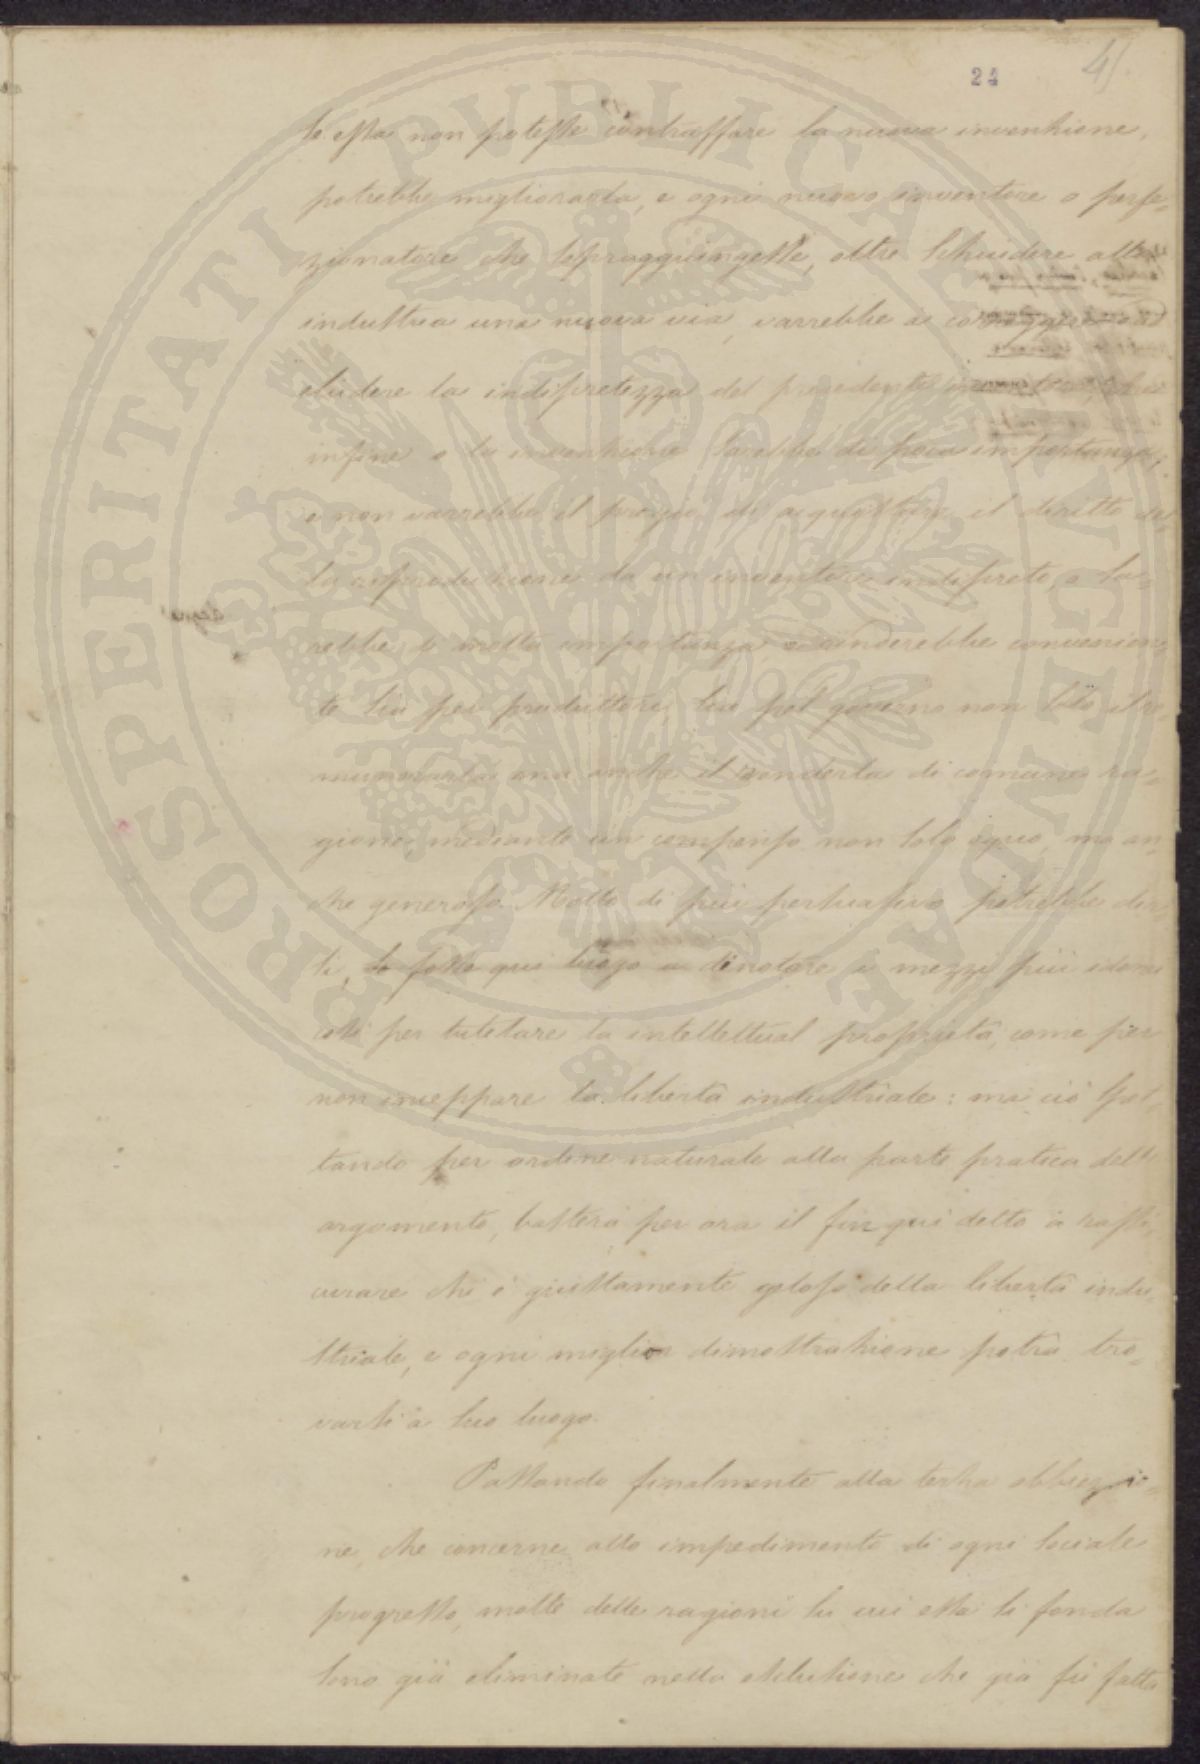 24
41
se essa non potesse contraffare la nuova invenzione,
potrebbe migliorarla, e ogni nuovo inventore o perfe-
zionatore che sopraggiungesse, oltre schiudere alla
industria una nuova via, varrebbe a correggere o ad
eludere la indiscretezza del precedente inventore; che
infine o la invenzione sarebbe di poca importanza,
e non varrebbe il pregio di acquistare il diritto del-
la riproduzione da un inventore indiscreto, o sa-
rebbe di molta importanza e renderebbe convenien-
te sia pei produttori, sia pel governo non solo il re-
munerarla ma anche il renderla di comune ra-
gione, mediante un compenso non solo equo, ma an-
che generoso. Molto di più persuasivo potrebbe dir-
si, se fosse qui luogo a dinotare i mezzi più idonei
così per tutelare la intellettual proprietà, come per
non inceppare la libertà industriale: ma ciò spet-
tando per ordine naturale alla parte pratica dell'
argomento, basterà per ora il fin qui detto a rassi-
curare chi è giustamente geloso della libertà indu-
striale, e ogni miglior dimostrazione potrà tro-
varsi a suo luogo.
Passando finalmente alla terza obbiezio-
ne, che concerne allo impedimento di ogni sociale
progresso, molte delle ragioni su cui essa si fonda
sono già eliminate nella esclusione che già fu fatta
PROSPERITATI PVBLICAE AVGENDAE